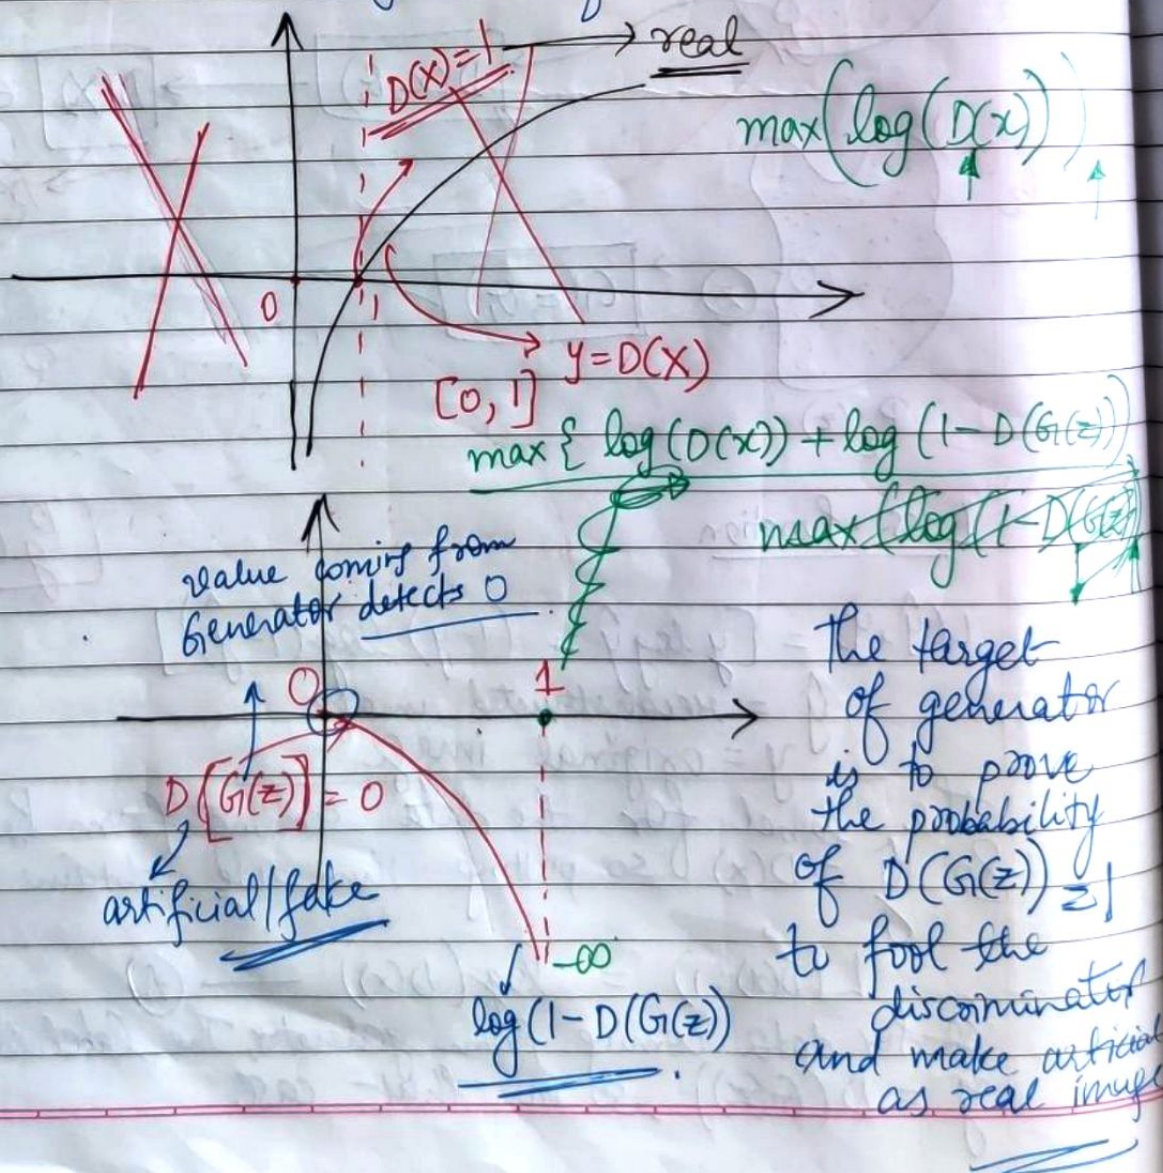 D(X)=1
real
max(log(D(x)))
0
1
y=D(X)
[0, 1]
max { log(D(x)) + log (1-D(G(z))
max (log (1-D(G(z))
value coming from
Generator detects 0
0
1
D[G(z)] = 0
artificial/fake
-∞
log(1-D(G(z))
The target
of generator
is to prove
the probability
of D(G(z)) = 1
to fool the
discriminator
and make articial
as real image